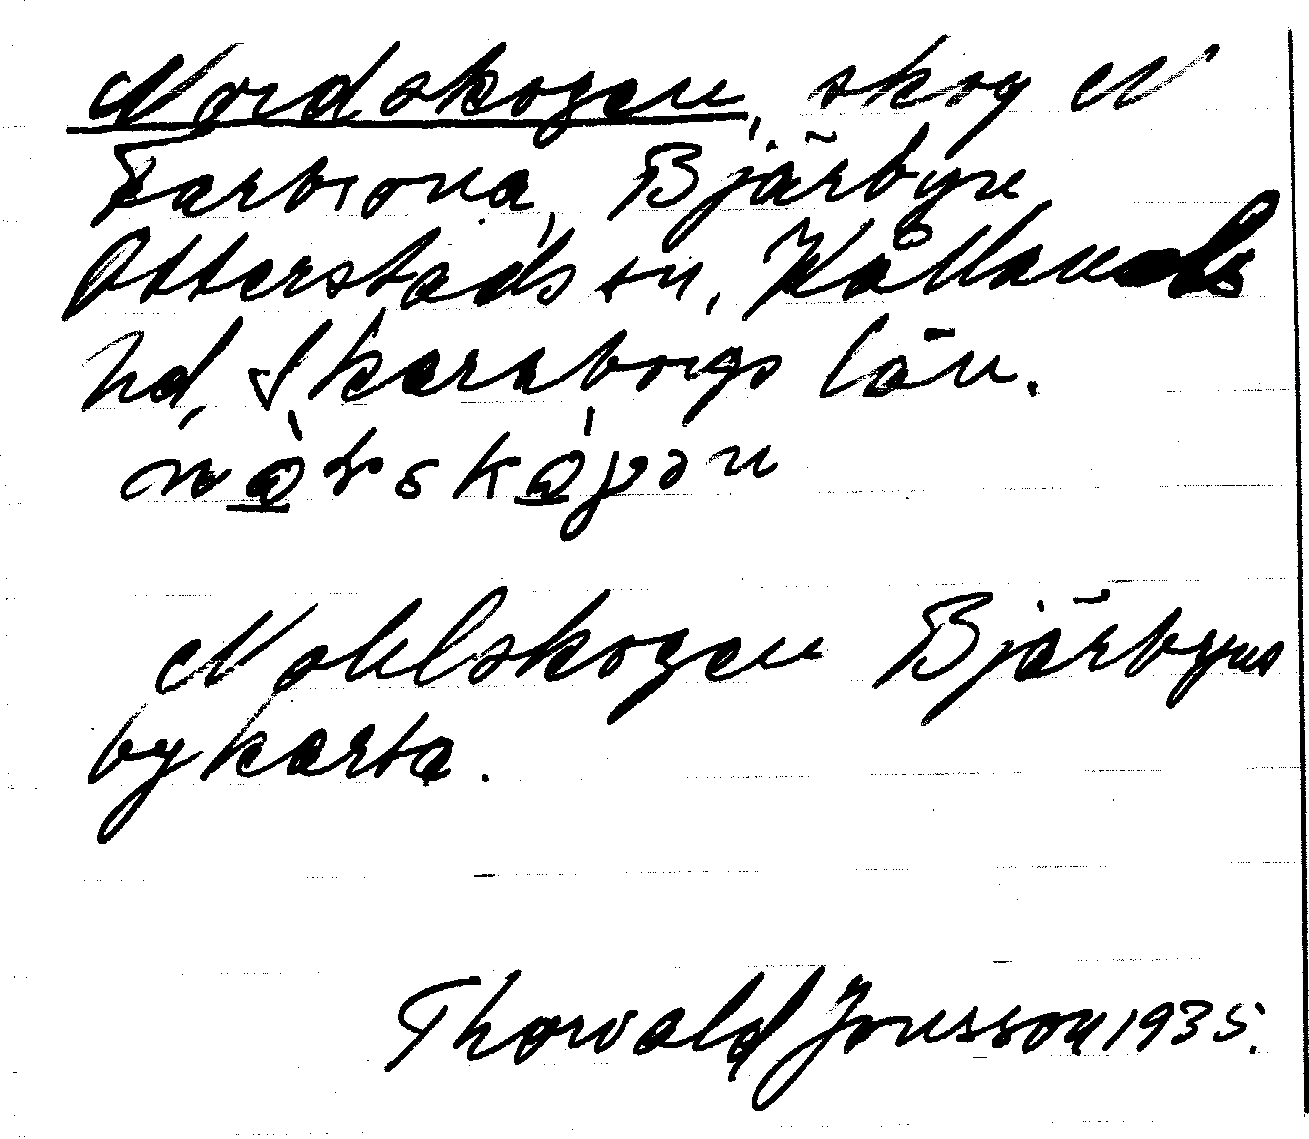 Nordskogen, skog N
Bjärbyn
Otterstads sn, Kållands
hd, Skaraborgs län.
Nohlskogen Bjärbyns
bykarta.
Thorvald Jonsson 1935.